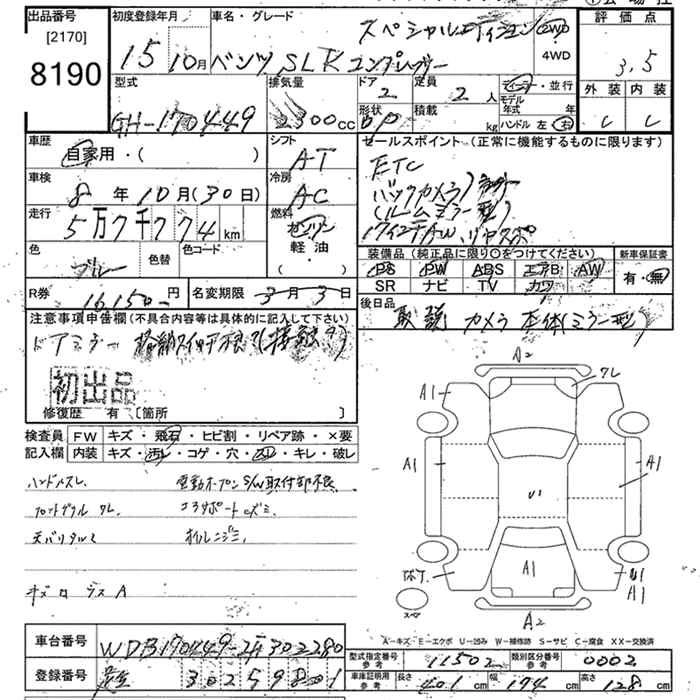 出品番号
[2170]
8190
初度登録年月
車名・グレード
スペシャルエディション
15 10月
ベンツ SLK コンプレッサー
2WD
4WD
評価点
3.5
外装 内装
型式
GH-170449
排気量
2300cc
ドア
2
定員
2人
形状
積載
kg
ディーラー・並行
モデル年式 年
ハンドル 左 右
車歴
自家用・( )
シフト
AT
車検
8年10月(30日)
冷房
AC
走行
5万7千774km
燃料
ガソリン
軽油
( )
色
ブルー
色替
色コード
セールスポイント(正常に機能するものに限ります)
ETC
バックカメラ
(ルームミラー型)
17インチAW、リヤスポ
装備品(純正品に限り○をつけてください)
新車保証書
PS PW ABS エアB AW
SR ナビ TV カワ
有・無
R券
16150円
名変期限
3月3日
後日品
取説 カメラ本体(ミラー型)
注意事項申告欄(不具合内容等は具体的に記入して下さい)
ドアミラー 格納スイッチ不良?(接触?)
初出品
修復歴 有 [箇所 ]
検査員
記入欄
FW キズ・飛石・ヒビ割・リペア跡・×要
内装 キズ・汚レ・コゲ・穴・スレ・キレ・破レ
ハンドルスレ
電動オープンS/W取付部不良
オイルニジミ
A2
A1
A1
A1
U1
A1
U1
A1
A2
スペア
A-キズ E-エクボ U-凹み W-補修跡 S-サビ C-腐食 XX-交換済
車台番号
WDB170449-2F302280
登録番号
302598
型式指定番号
参考
11502
類別区分番号
参考
0002
車庫証明用
参考
長さ
401cm
幅
174cm
高さ
128cm